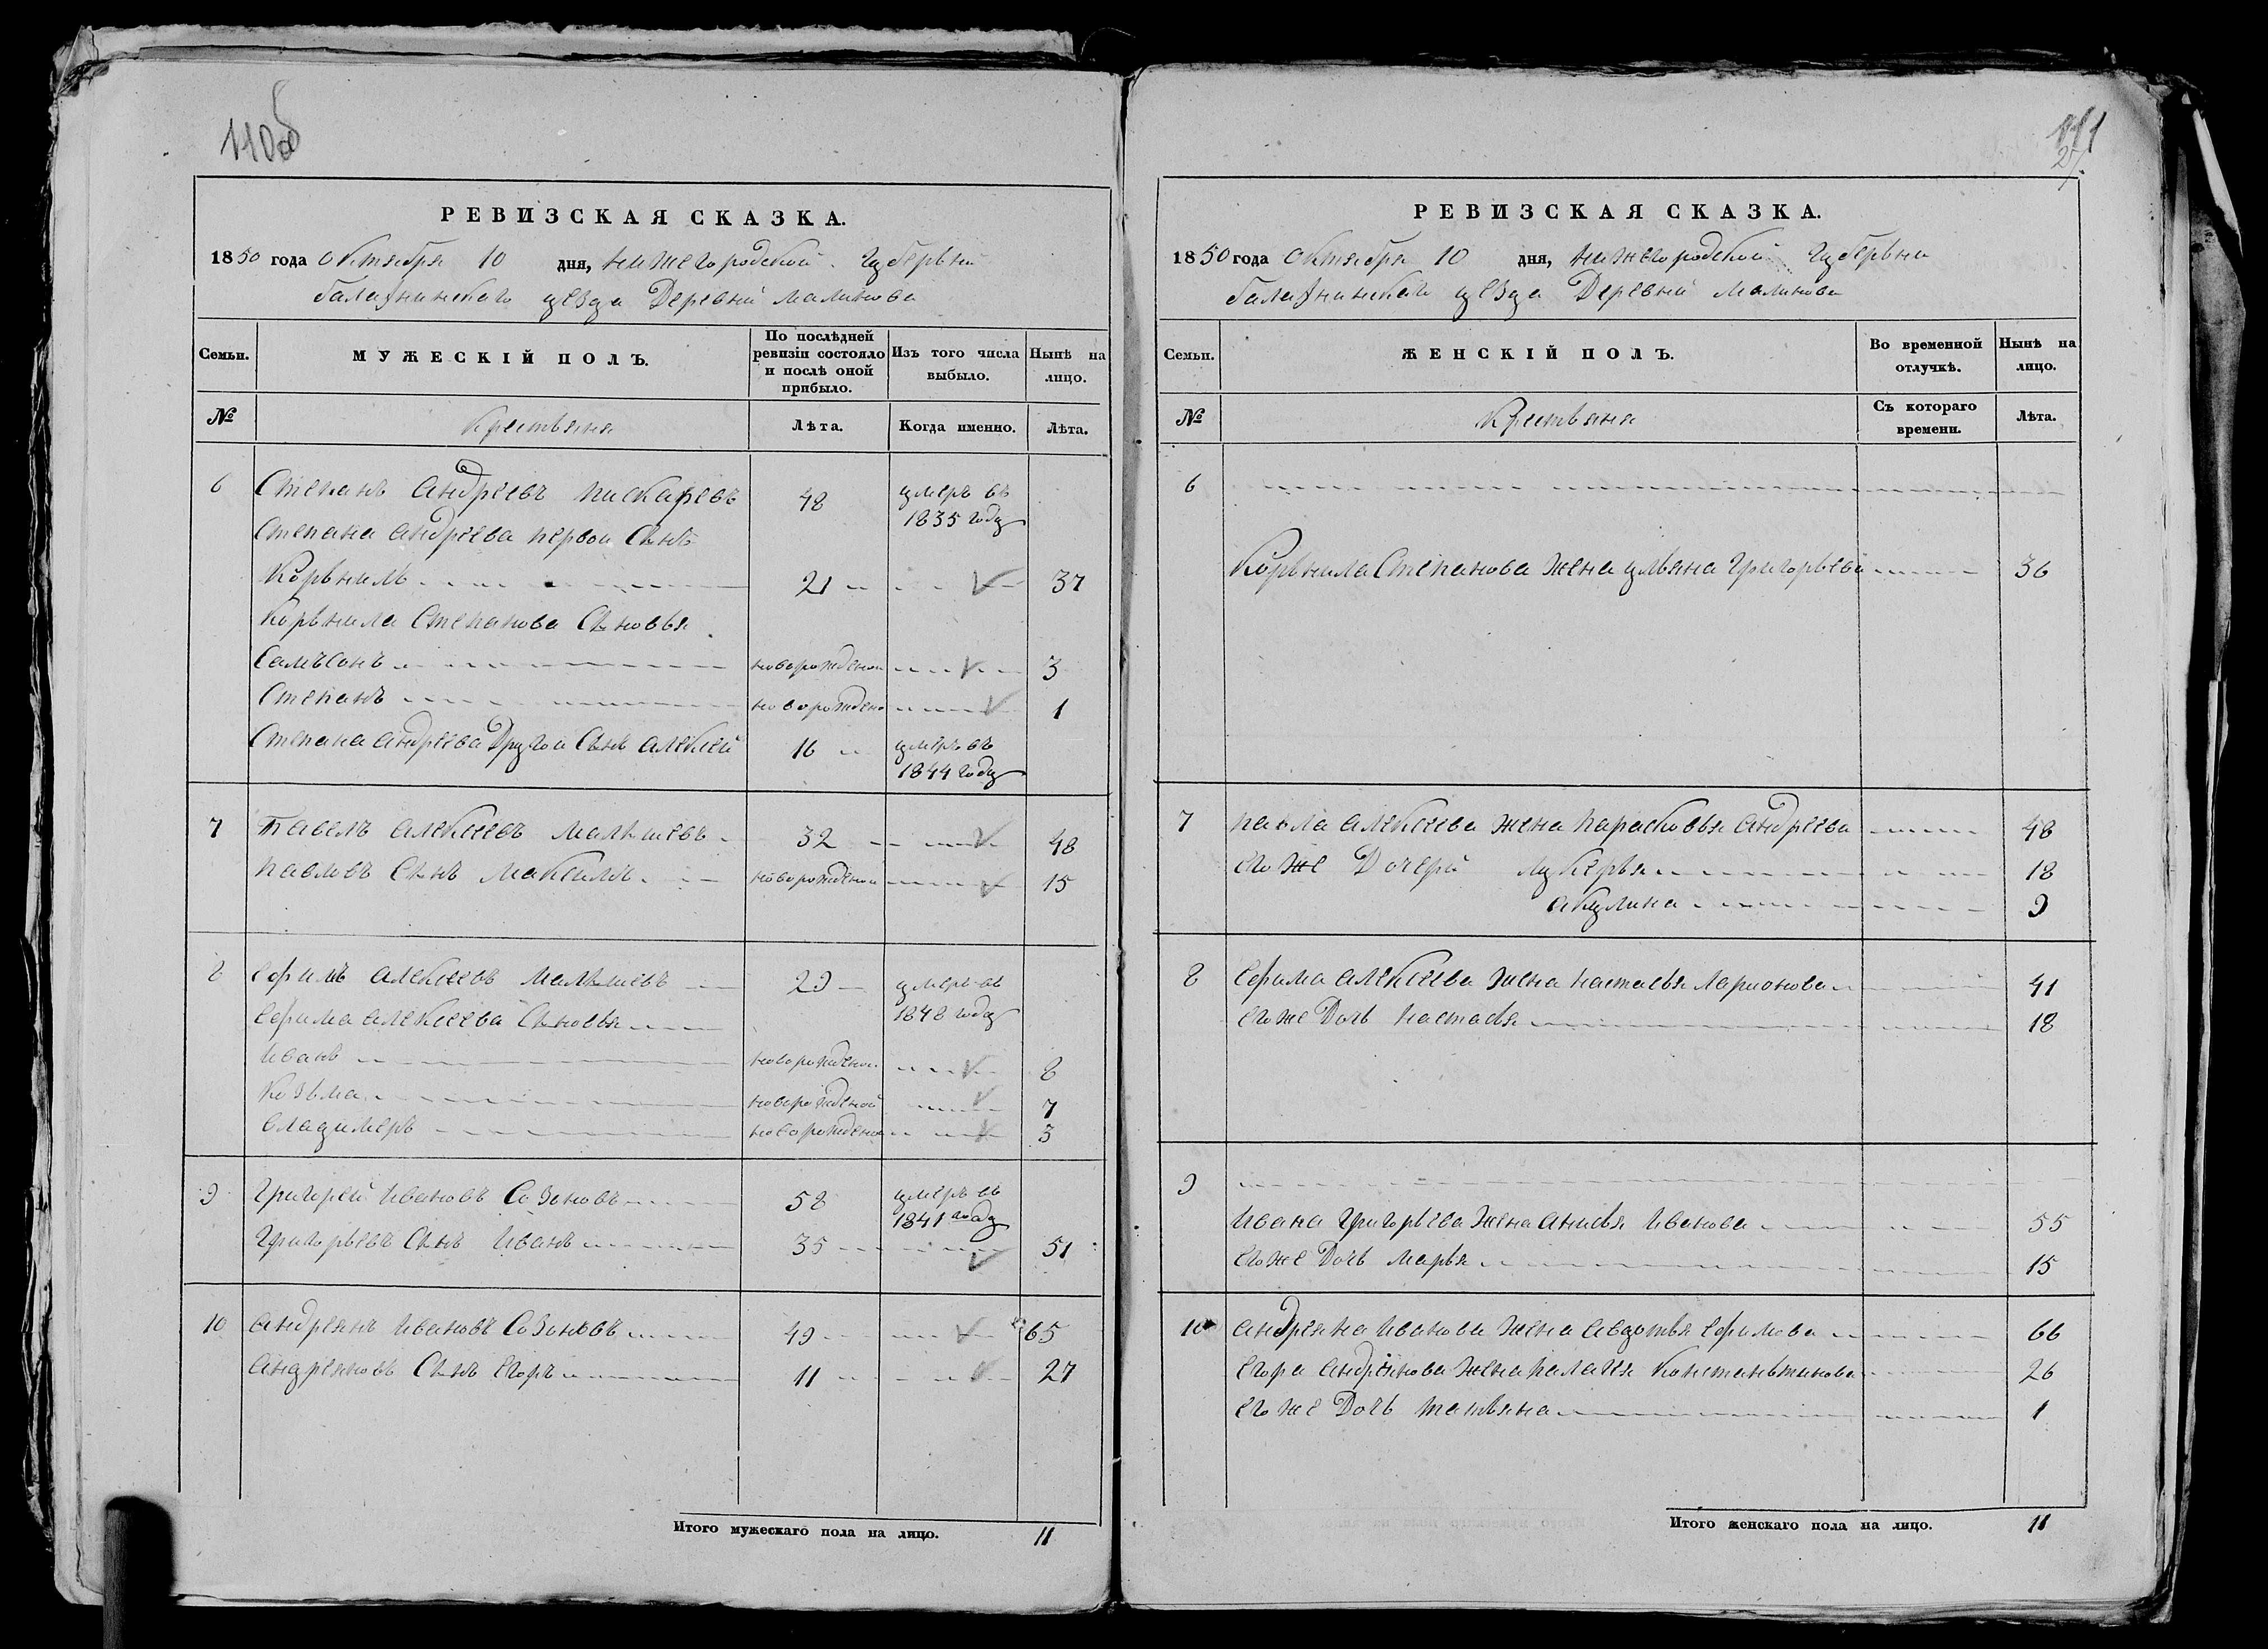 110об
РЕВИЗСКАЯ СКАЗКА.
1850 года октября 10 дня, нижегородской губерьний
балахнинскаго уезда Деревни малинова
Семьи.
МУЖЕСКІЙ ПОЛЪ.
По послѣдней ревизіи состояло и послѣ оной прибыло.
Изъ того числа выбыло.
Нынѣ на лицо.
№
Крестьяня
Лѣта.
Когда именно.
Лѣта.
6 Степанъ андреевъ пискаревъ 48 умеръ въ 1835 году
Степана андреева первои Сынъ
Корьнилъ 21 37
Корьнила Степанова Сыновья
Самъсонъ новорожденои 3
Степанъ новорожденои 1
Степана андреева Другои Сынъ алексей 16 умеръ въ 1844 году
7 Павелъ алексеевъ малышевъ 32 48
павловъ Сынъ Максимъ новорожденои 15
8 ефимъ алексеевъ малышевъ 29 умеръ въ 1848 году
ефима алексеева Сыновья
иванъ новорожденои 8
Козьма новорожденой 7
владимеръ новорожденои 3
9 григорей ивановъ Созоновъ 58 умеръ въ 1841 году
григорьевъ Сынъ иванъ 35 51
10 андреянъ ивановъ Созоновъ 49 65
андреяновъ Сынъ егоръ 11 27
Итого мужескаго пола на лицо. 11
111
РЕВИЗСКАЯ СКАЗКА.
1850 года октября 10 дня, нижегородской губерьни
балахнинскаго уезда Деревни малинова
Семьи.
ЖЕНСКІЙ ПОЛЪ.
Во временной отлучкѣ.
Нынѣ на лицо.
№
Крестьяня
Съ котораго времени.
Лѣта.
6
Корьнила Степанова жена ульяна григорьева 36
7 павла алексеева жена парасковья андреева 48
егоже Дочерй лукерья 18
акулина 9
8 ефима алексеева жена настасья ларионова 41
егоже Дочь настасья 18
9
ивана григорьева жена анисья иванова 55
егоже Дочь марья 15
10 андреяна иванова жена авдотья ефимова 66
егора андреянова жена палагея константинова 26
егоже Дочь татьяна 1
Итого женскаго пола на лицо. 11